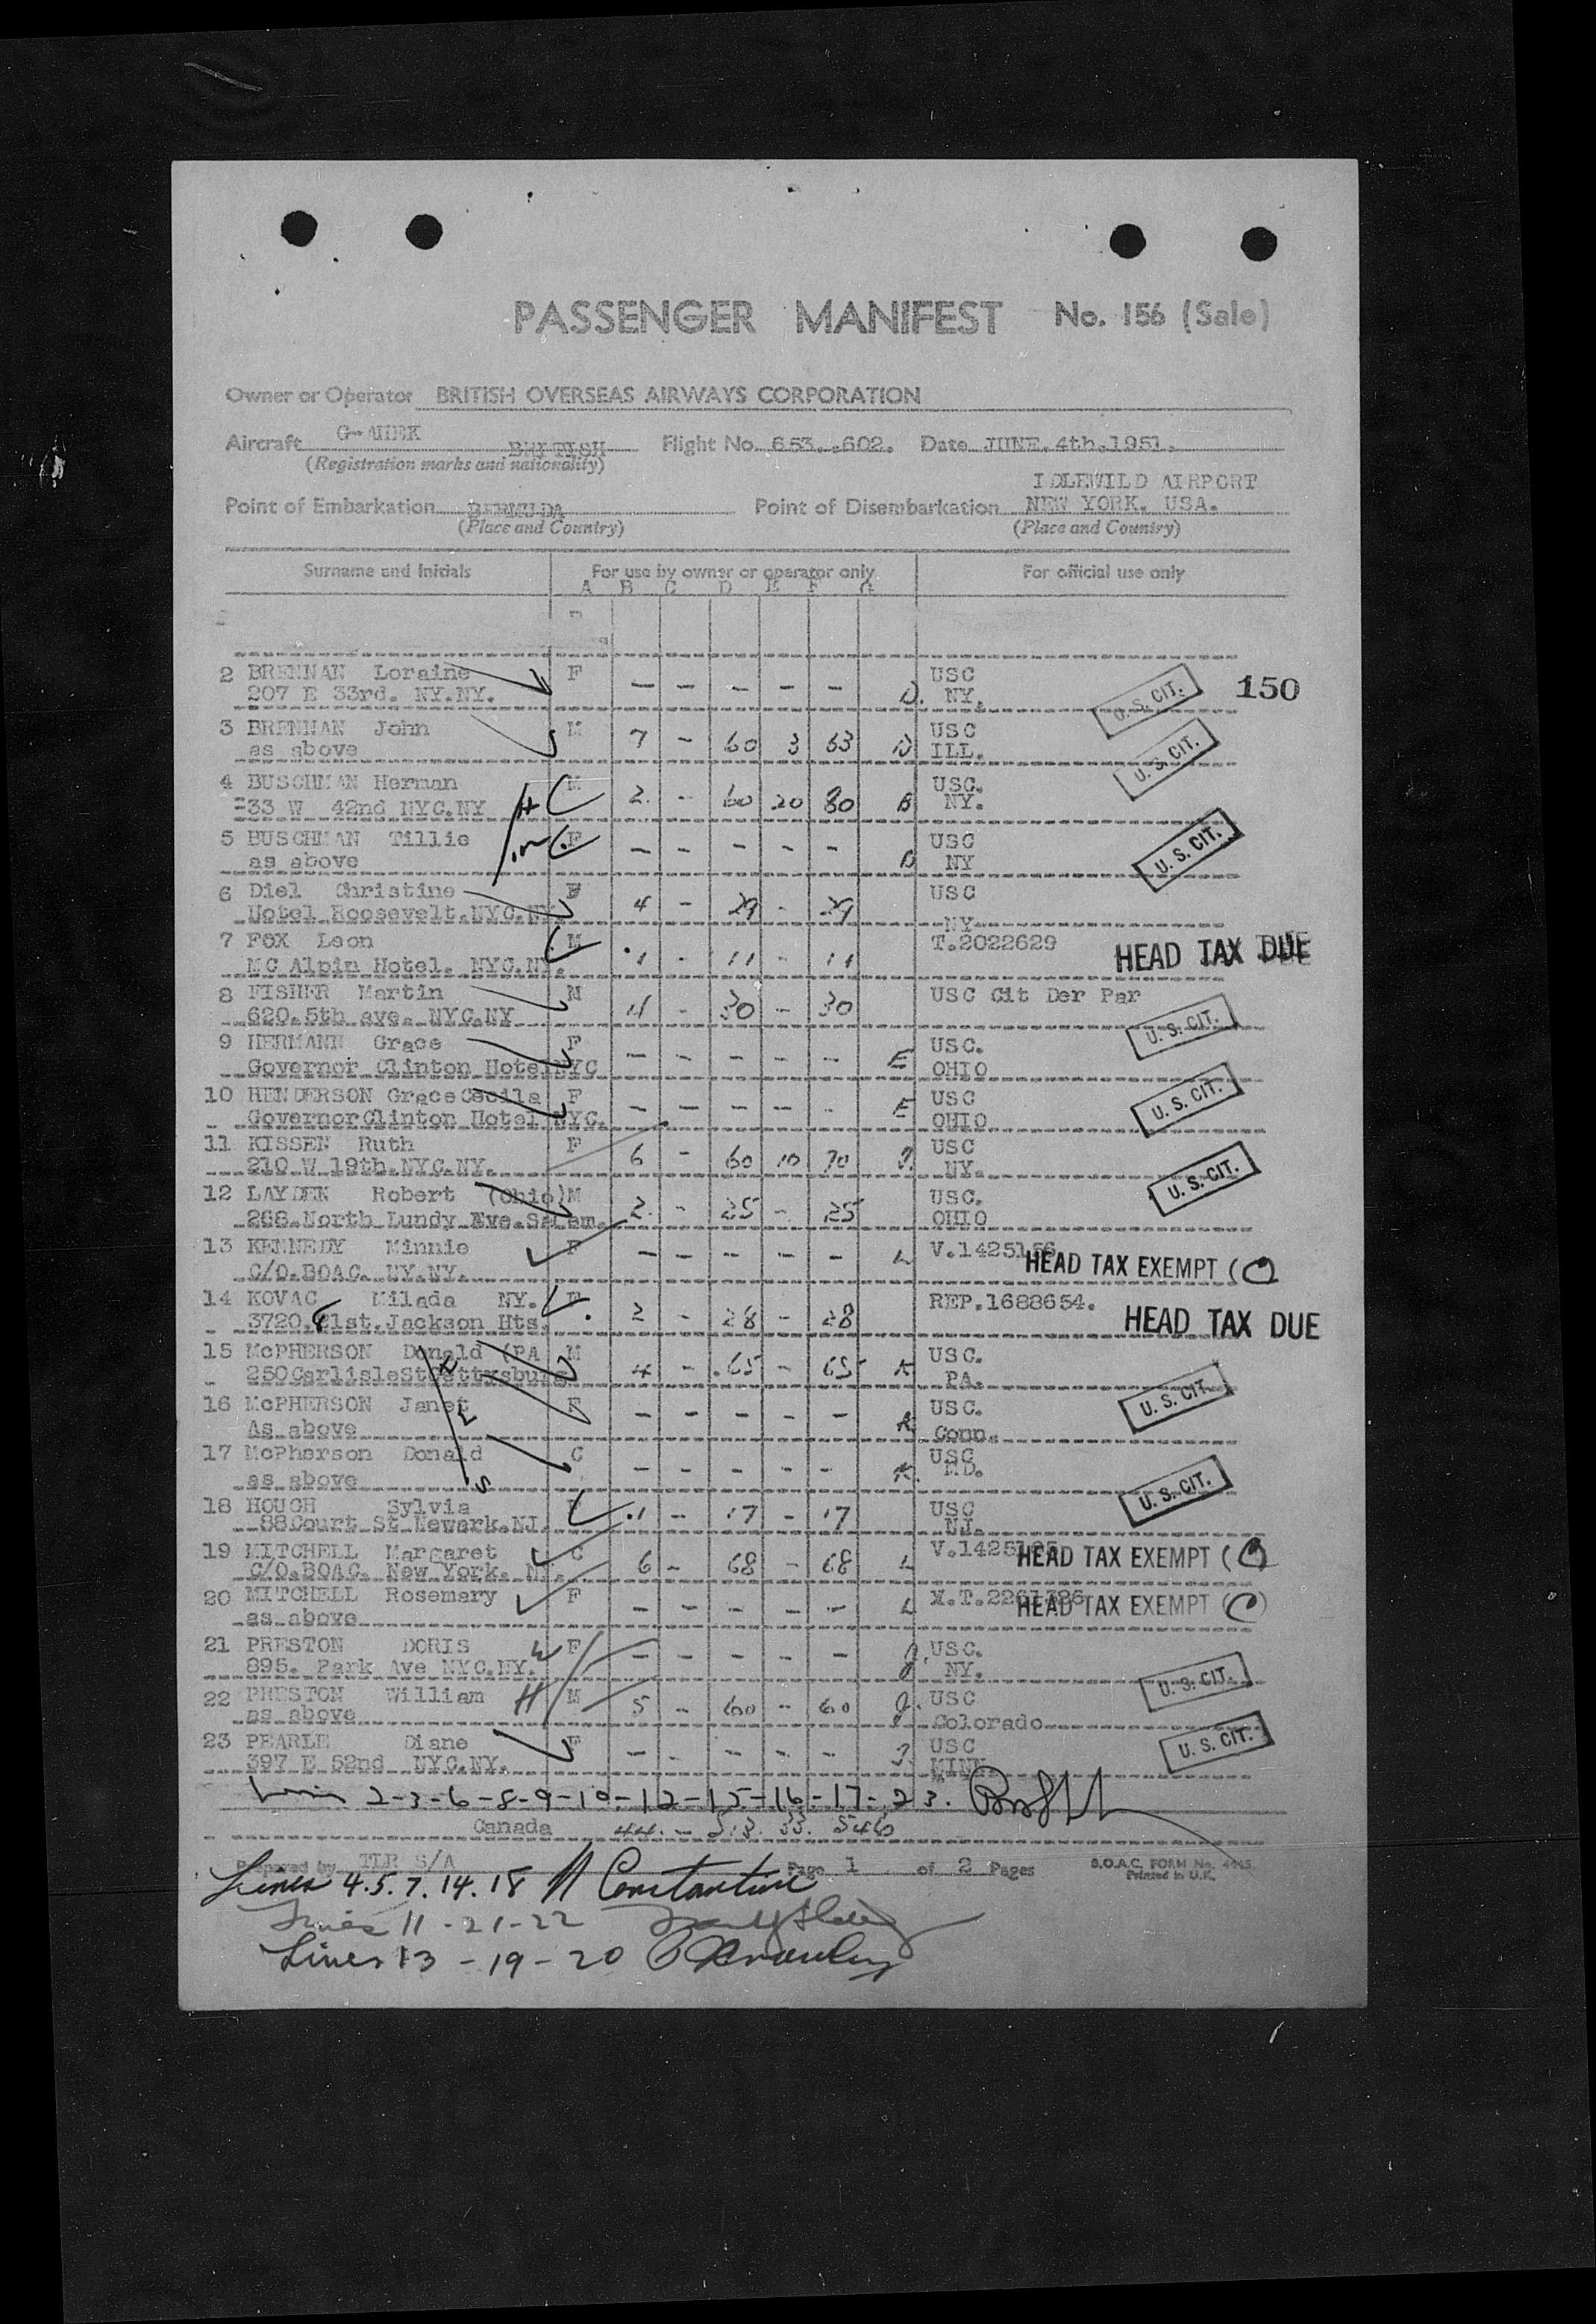 PASSENGER MANIFEST No. 156 (Sale)
Owner or Operator BRITISH OVERSEAS AIRWAYS CORPORATION
Aircraft BRITISH Flight No. 653..602. Date JUNE. 4th.1951.
(Registration marks and nationality)
IDLEWILD AIRPORT
Point of Embarkation BERMUDA Point of Disembarkation NEW YORK. USA.
(Place and Country) (Place and Country)
Surname and Initials For use by owner or operator only For official use only
A B C D E F G
2 BRENNAN Loraine F USC
207 E 33rd. NY.NY. - - - - - D. NY. U. S. CIT. 150
3 BRENNAN John M 7 - 60 3 63 D USC
as above ILL. U. S. CIT.
4 BUSCHMAN Herman M USC.
33 W 42nd NYC.NY H 2. - 60 20 80 B NY.
5 BUSCHMAN Tillie F USC
as above - - - - - B NY U. S. CIT.
6 Diel Christine F USC
Hotel Roosevelt.NYC.NY. 4 - 29 - 29 NY
7 FOX Leon M T.2022629
MC Alpin Hotel. NYC.NY. 1 - 11 - 11 HEAD TAX DUE
8 FISHER Martin M USC Cit Der Par
620.5th ave. NYC.NY 4 - 30 - 30 U. S. CIT.
9 HERMANN Grace F USC.
Governor Clinton Hotel NYC - - - - - E OHIO
10 HENDERSON Grace Cecila F USC
Governor Clinton Hotel NYC. - - - - - E OHIO U. S. CIT.
11 KISSEN Ruth F USC
210 W 19th.NYC.NY. 6 - 60 10 70 NY. U. S. CIT.
12 LAYDEN Robert (Ohio) M USC.
268.North Lundy Eve.Salem. 2. - 25 - 25 OHIO
13 KENNEDY Minnie F V.1425156
C/O.BOAC. NY.NY. - - - - - L HEAD TAX EXEMPT (
14 KOVAC Milada NY. F REP.1688654.
3720.81st.Jackson Hts. 2 - 28 - 28 HEAD TAX DUE
15 McPHERSON Donald (PA M USC.
250 Carlisle St Gettysburg 4 - 65 - 65 K PA.
16 McPHERSON Janet F USC. U. S. CIT.
As above - - - - - K Conn.
17 McPherson Donald C USC
as above - - - - - K. MD.
18 HOUGH Sylvia F USC U. S. CIT.
88 Court St Newark.NJ. 1 - 17 - 17 NJ.
19 MITCHELL Margaret C
C/O.BOAC. New York. NY. 6 - 68 - 68 L HEAD TAX EXEMPT (
20 MITCHELL Rosemary F
as above - - - - - L HEAD TAX EXEMPT ( )
21 PRESTON DORIS W F USC.
895. Park Ave NYC.NY. - - - - - NY.
22 PRESTON William H M USC U. S. CIT.
as above 5 - 60 - 60 Colorado
23 PEARLE Diane F USC
397 E 52nd NYC.NY. - - - - - MINN U. S. CIT.
2-3-6-8-9-10-12-15-16-17-23.
Canada 44. - 513. 33. 546
Prepared by TLR S/A Page 1 of 2 Pages B.O.A.C. FORM No.
Printed in U.K.
Lines 4.5.7.14.18 A Constantine
Lines 11-21-22
Lines 13-19-20